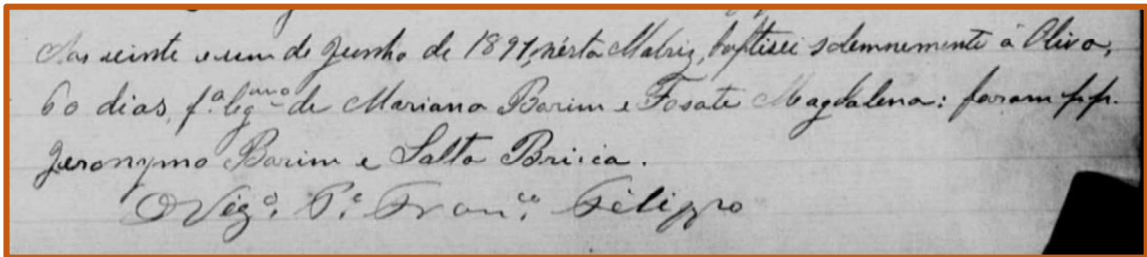 Aos vinte e um de Junho de 1891, nésta Matriz, baptisei solemnemente á Oliva,
60 dias, f.ª leg.ma de Mariano Barim e Fosate Magdalena: foram p.p.
Jeronymo Barim e Salto Bricia.
O Vig.º P.e Fran.co Felippo